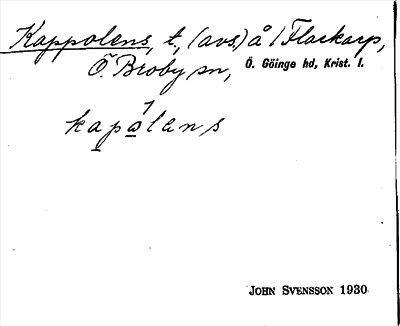 Kappolens, t., (avs.) å / Flackarp,
Ö. Broby sn, Ö. Göinge hd, Krist. l.
kapålens
JOHN SVENSSON 1930